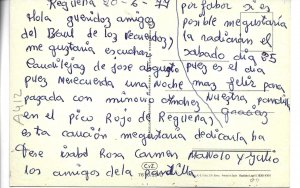 Requena 20-6-77
Hola queridos amigos
del Baul de los recuerdos,
me gustaria escuchar
Candilejas de jose augusto
pues merecuerda una noche muy feliz para
pasada con mi novio Andres
en el pico Rojo de Requena,
esta canción megustaria dedicarla ha
Tere isabel Rosa Carmen Manolo y Julio
los amigos dela pandilla
por fabor si es
posible megustaria
la radiaran el
sabado dia 25
pues es el dia
Nuestra pandilla
Gracias
A412